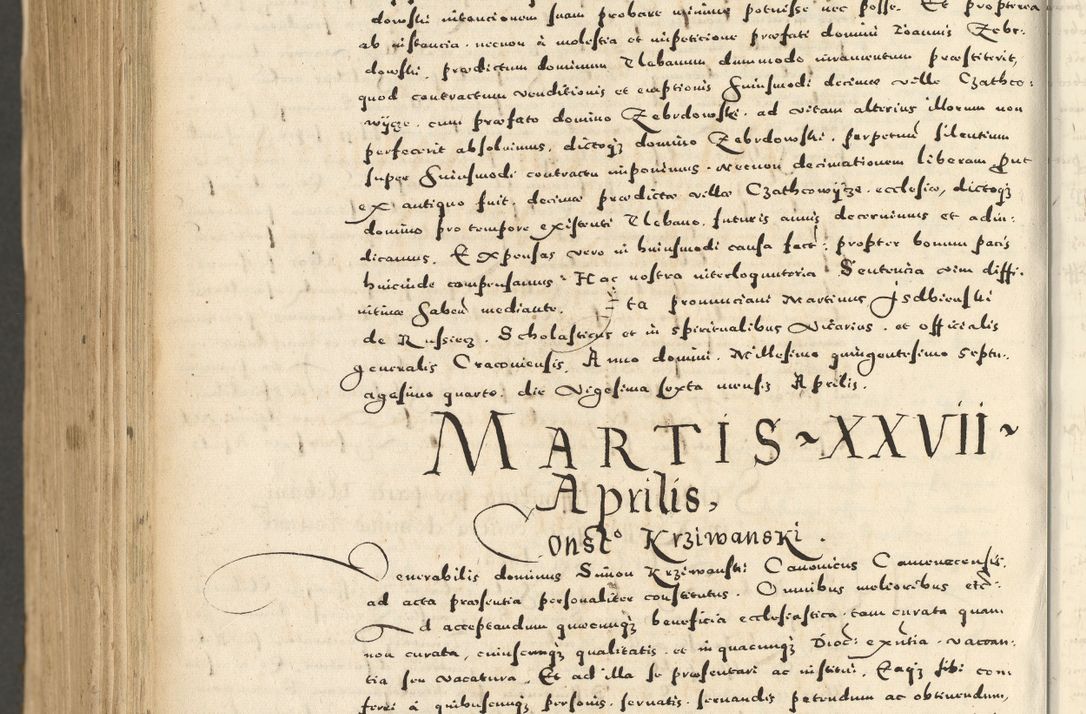 dowski intencionem suam probare minime potuisse nec posse. Et propterea
ab instancia necnon à molestia et impeticione præfati domini Ioannis Zebr-
dowski, prædictum dominum Plebanum, dummodo iuramentum præstiterit,
quod contractum venditionis et emptionis huiusmodi decimæ villæ Czathco-
wycze, cum præfato domino Zebrdowski, ad vitam alterius illorum non
perfecerit absolvimus, dictoq3 domino Zebrdowski, perpetuum silentium
super huiusmodi contractu imponimus. Necnon decimationem liberam put
ex antiquo fuit, decimæ prædictæ villæ Czathcowycze, ecclesiæ, dictoq3
domino pro tempore existenti Plebano, futuris annis decernimus et adiu-
dicamus. Expensas vero in huiusmodi causa fact: propter bonum pacis
huicinde compensamus. Hac nostra interloquutoria Sententia vim diffi-
nitivæ haben mediante. Ita pronunciavi Martinus Isdbienski
de Russiecz. Scholasticus et in spiritualibus Vicarius, et officialis
generalis Cracoviensis. Anno domini. Millesimo quingentesimo septu-
agesimo quarto. die Vigesima sexta mensis Aprilis.
MARTIS ~ XXVII ~
Aprilis,
Constº Krziwanski.
Venerabilis dominus Simon Krziwanski Canonicus Camenecensis,
ad acta præsentia personaliter constitutus. Omnibus melioribus etc:
Ad acceptandum quæcunq3 beneficia ecclesiastica, tam curata quam
non curata, cuiuscunq3 qualitatis, et in quacunq3 Dioc: exntia, vacan-
tia seu vacatura. Et ad illa se præsentari ac institui. Eaq3 sibi con
ferri à quibuscunq3 personis, servatis servandis petendum ac obtinendum,